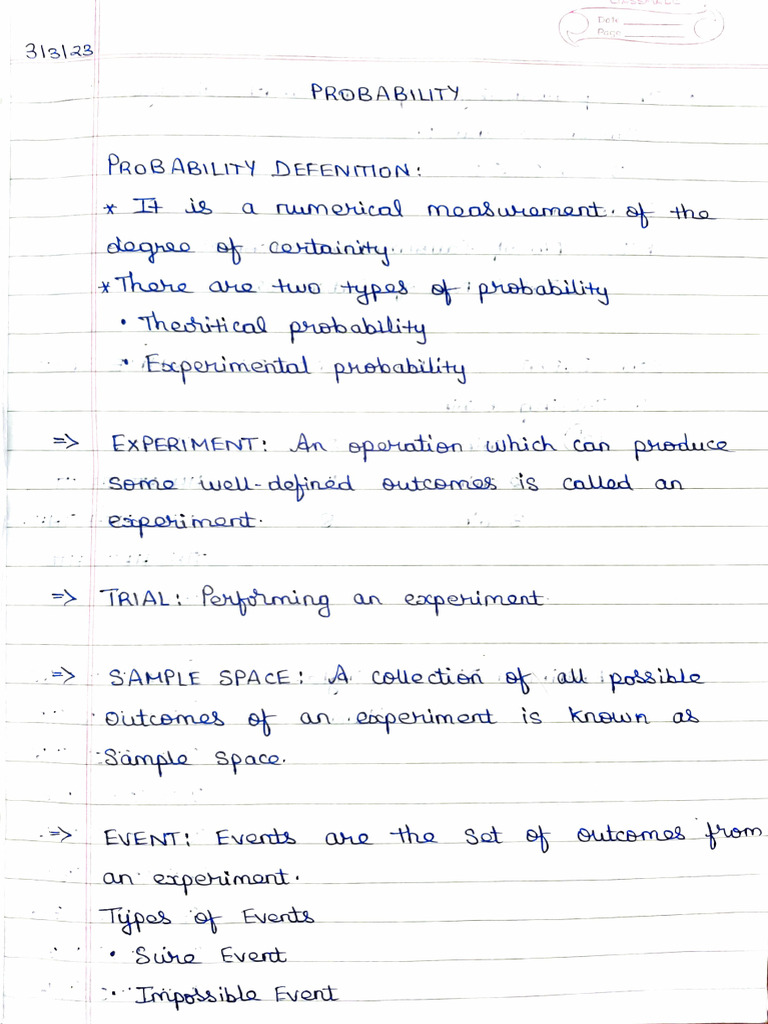 Date
Page
3/3/23
PROBABILITY
PROBABILITY DEFENITION:
* It is a numerical measurement of the
degree of certainity.
* There are two types of probability
• Theoritical probability
• Experimental probability
=> EXPERIMENT: An operation which can produce
some well-defined outcomes is called an
experiment.
=> TRIAL: Performing an experiment
=> SAMPLE SPACE: A collection of all possible
outcomes of an experiment is known as
Sample space.
=> EVENT: Events are the set of outcomes from
an experiment.
Types of Events
• Sure Event
• Impossible Event